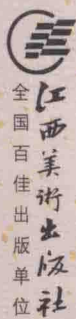 江西美術出版社
全国百佳出版单位